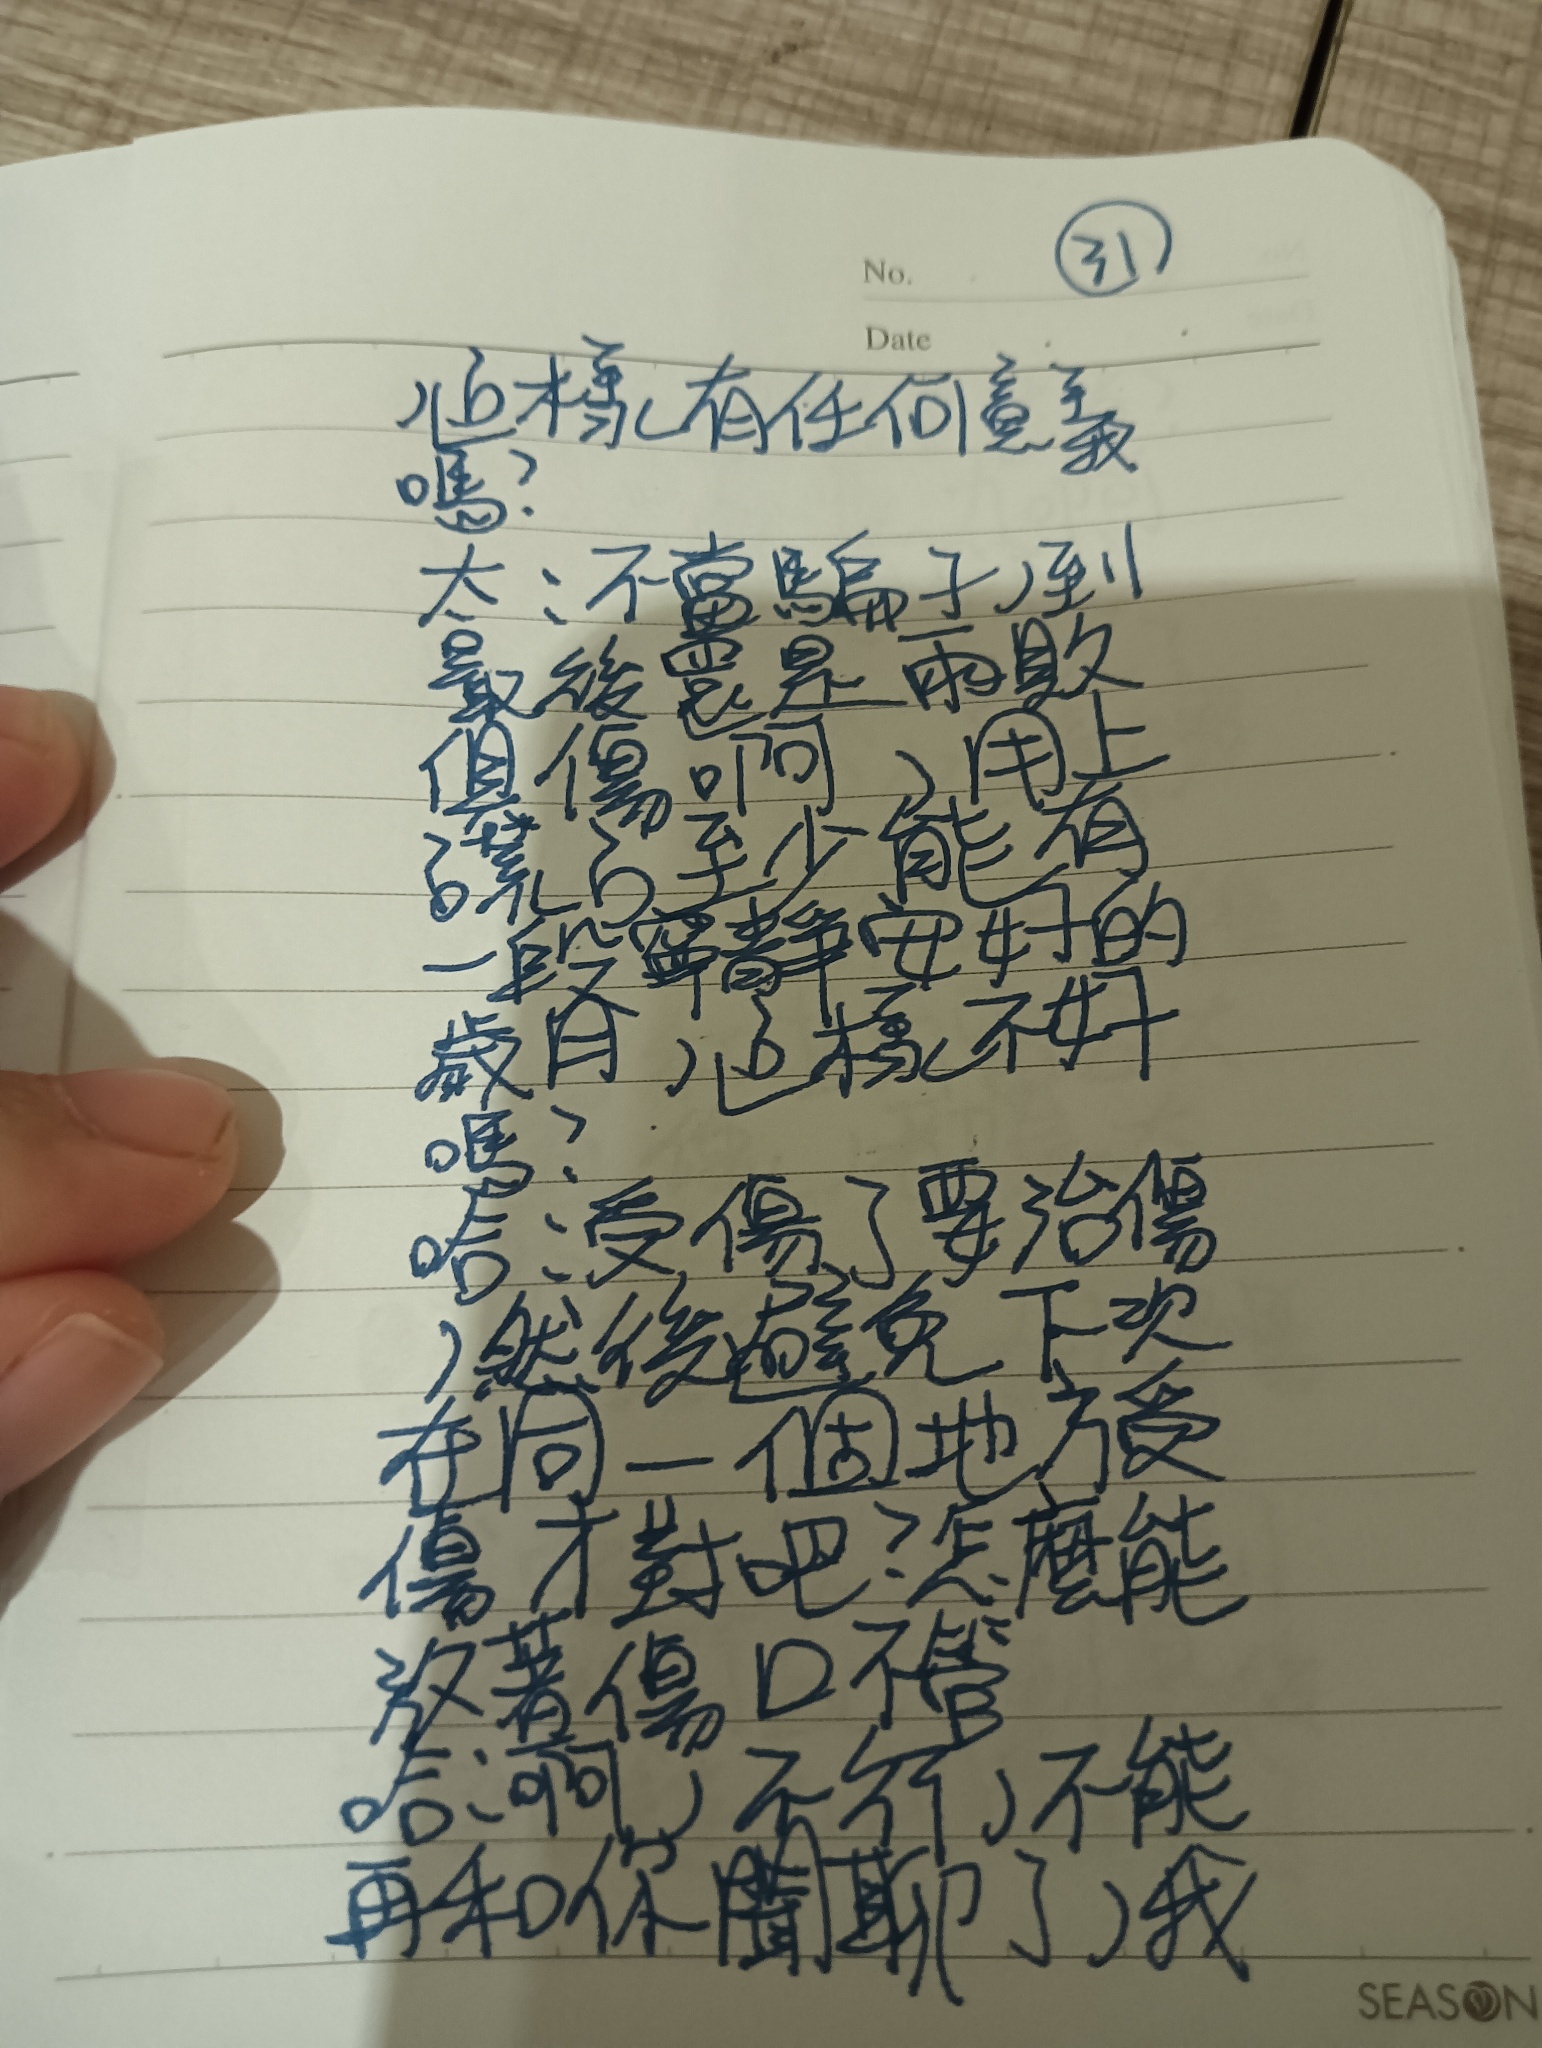 No. 31
Date
,這樣有任何意義
嗎?
太:不當騙子,到
最後還是兩敗
俱傷啊,用上
謊言至少能有
一段寧靜安好的
歲月,這樣不好
嗎?
哈:受傷了要治傷
,然後避免下次
在同一個地方受
傷才對吧?怎麼能
放著傷口不管
哈:啊,不行,不能
再和你閒聊了,我
SEASON